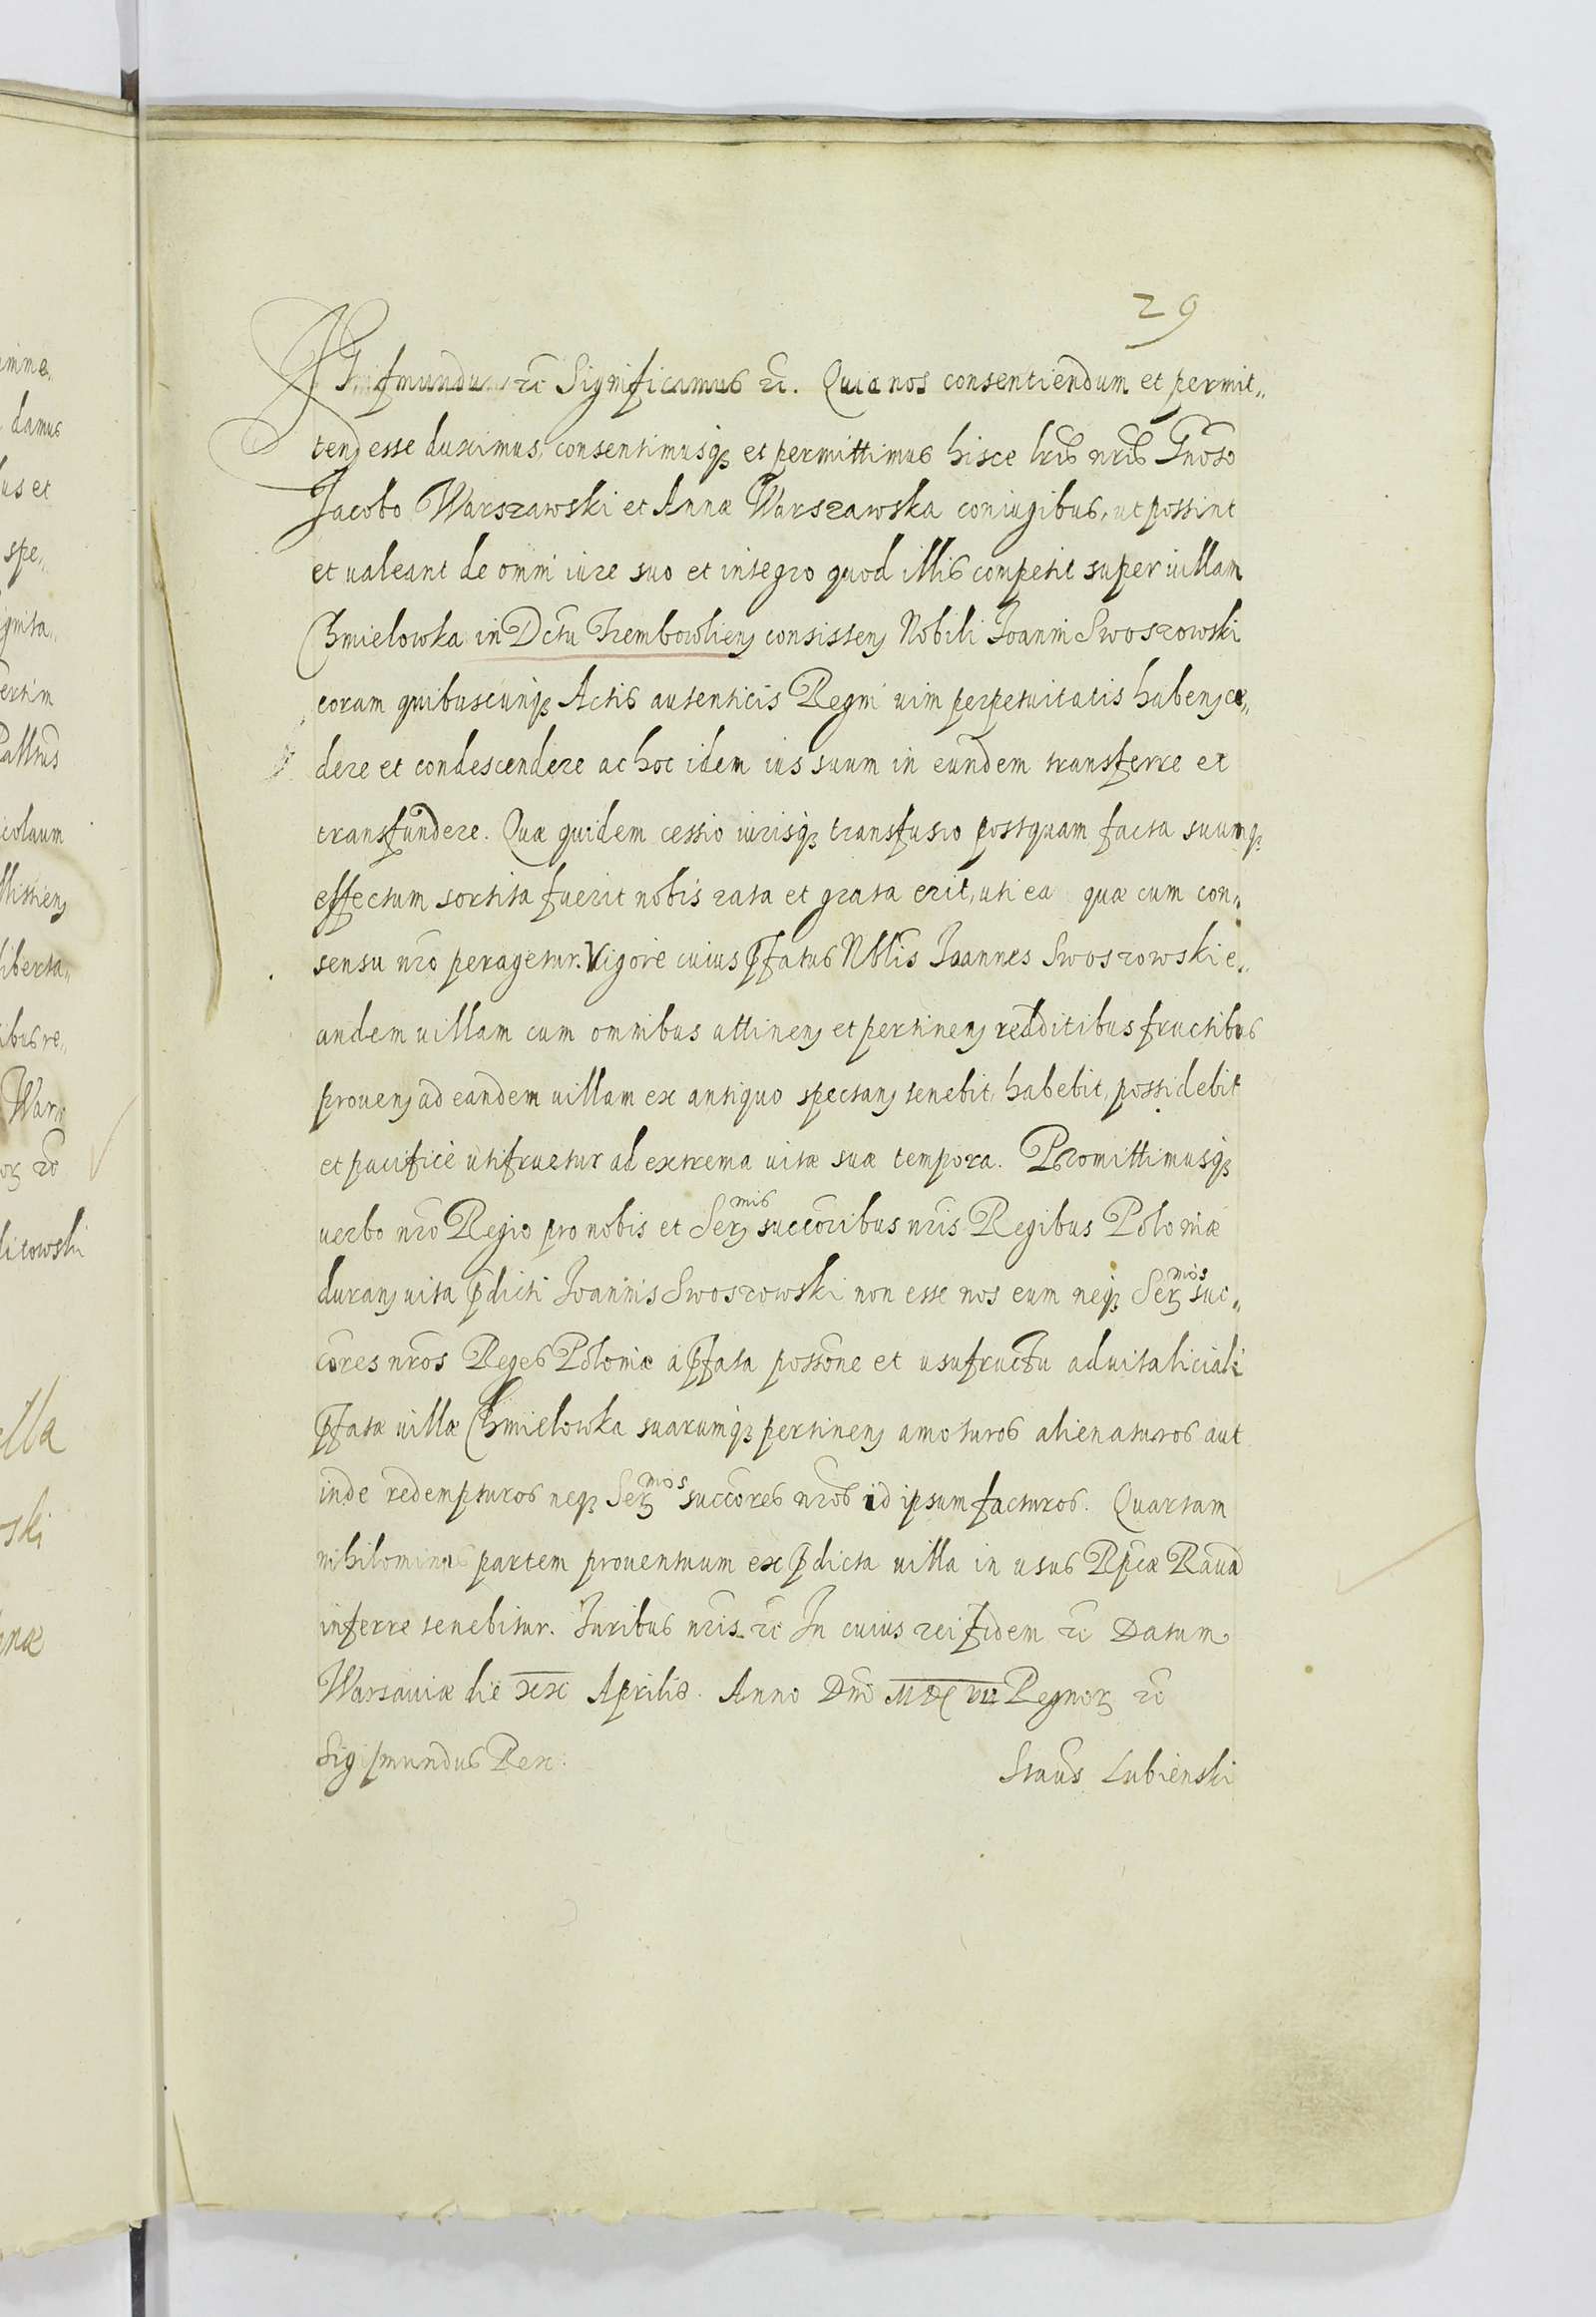 29
Sigismundus etc Significamus etc. Quia nos consentiendum et permit„
tend esse duximus, consentimusq et permittimus hisce lris nris Gnoso
Jacobo Warszawski et Annæ Warszawska coniugibus, ut possint
et valeant de omni iure suo et integro quod illis competit super uillam
Chmielowka in Dctu Trembowliens consistens Nobili Joanni Swoszowski
coram quibuscunq Actis autenticis Regni uim perpetuitatis habens ce„
dere et condescendere ac hoc idem ius suum in eundem transferre et
transfundere. Quæ quidem cessio iurisq transfusio postquam facta suumq
effectum sortita fuerit nobis rata et grata erit, uti ea quæ cum con„
sensu nro peragetur. Vigore cuius pfatus Nblis Joannes Swoszowski e„
andem uillam cum omnibus attinens et pertinens redditibus fructibus
prouens ad eandem uillam ex antiquo spectans tenebit, habebit, possidebit
et pacificè utifruetur ad extrema uitæ suæ tempora. Promittimusq
uerbo nro Regio pro nobis et Sermis succoribus nris Regibus Poloniæ
durans uita pdicti Joannis Swoszowski non esse nos eum neq Sermos suc„
cores nros Reges Poloniæ à pfata possone et usufructu aduitaliciali
pfatæ uillæ Chmielowka suarumq pertinens amoturos alienaturos aut
inde redempturos neq Sermos succores nros id ipsum facturos. Quartam
nihilominus partem prouentuum ex pdicta uilla in usus Rpcæ Rauã
inferre tenebitur. Juribus nris etc In cuius rei fidem etc Datum
Warsauiæ die XX Aprilis. Anno Dni Regnor etc
Sigismundus Rex.
Staus Lubienski